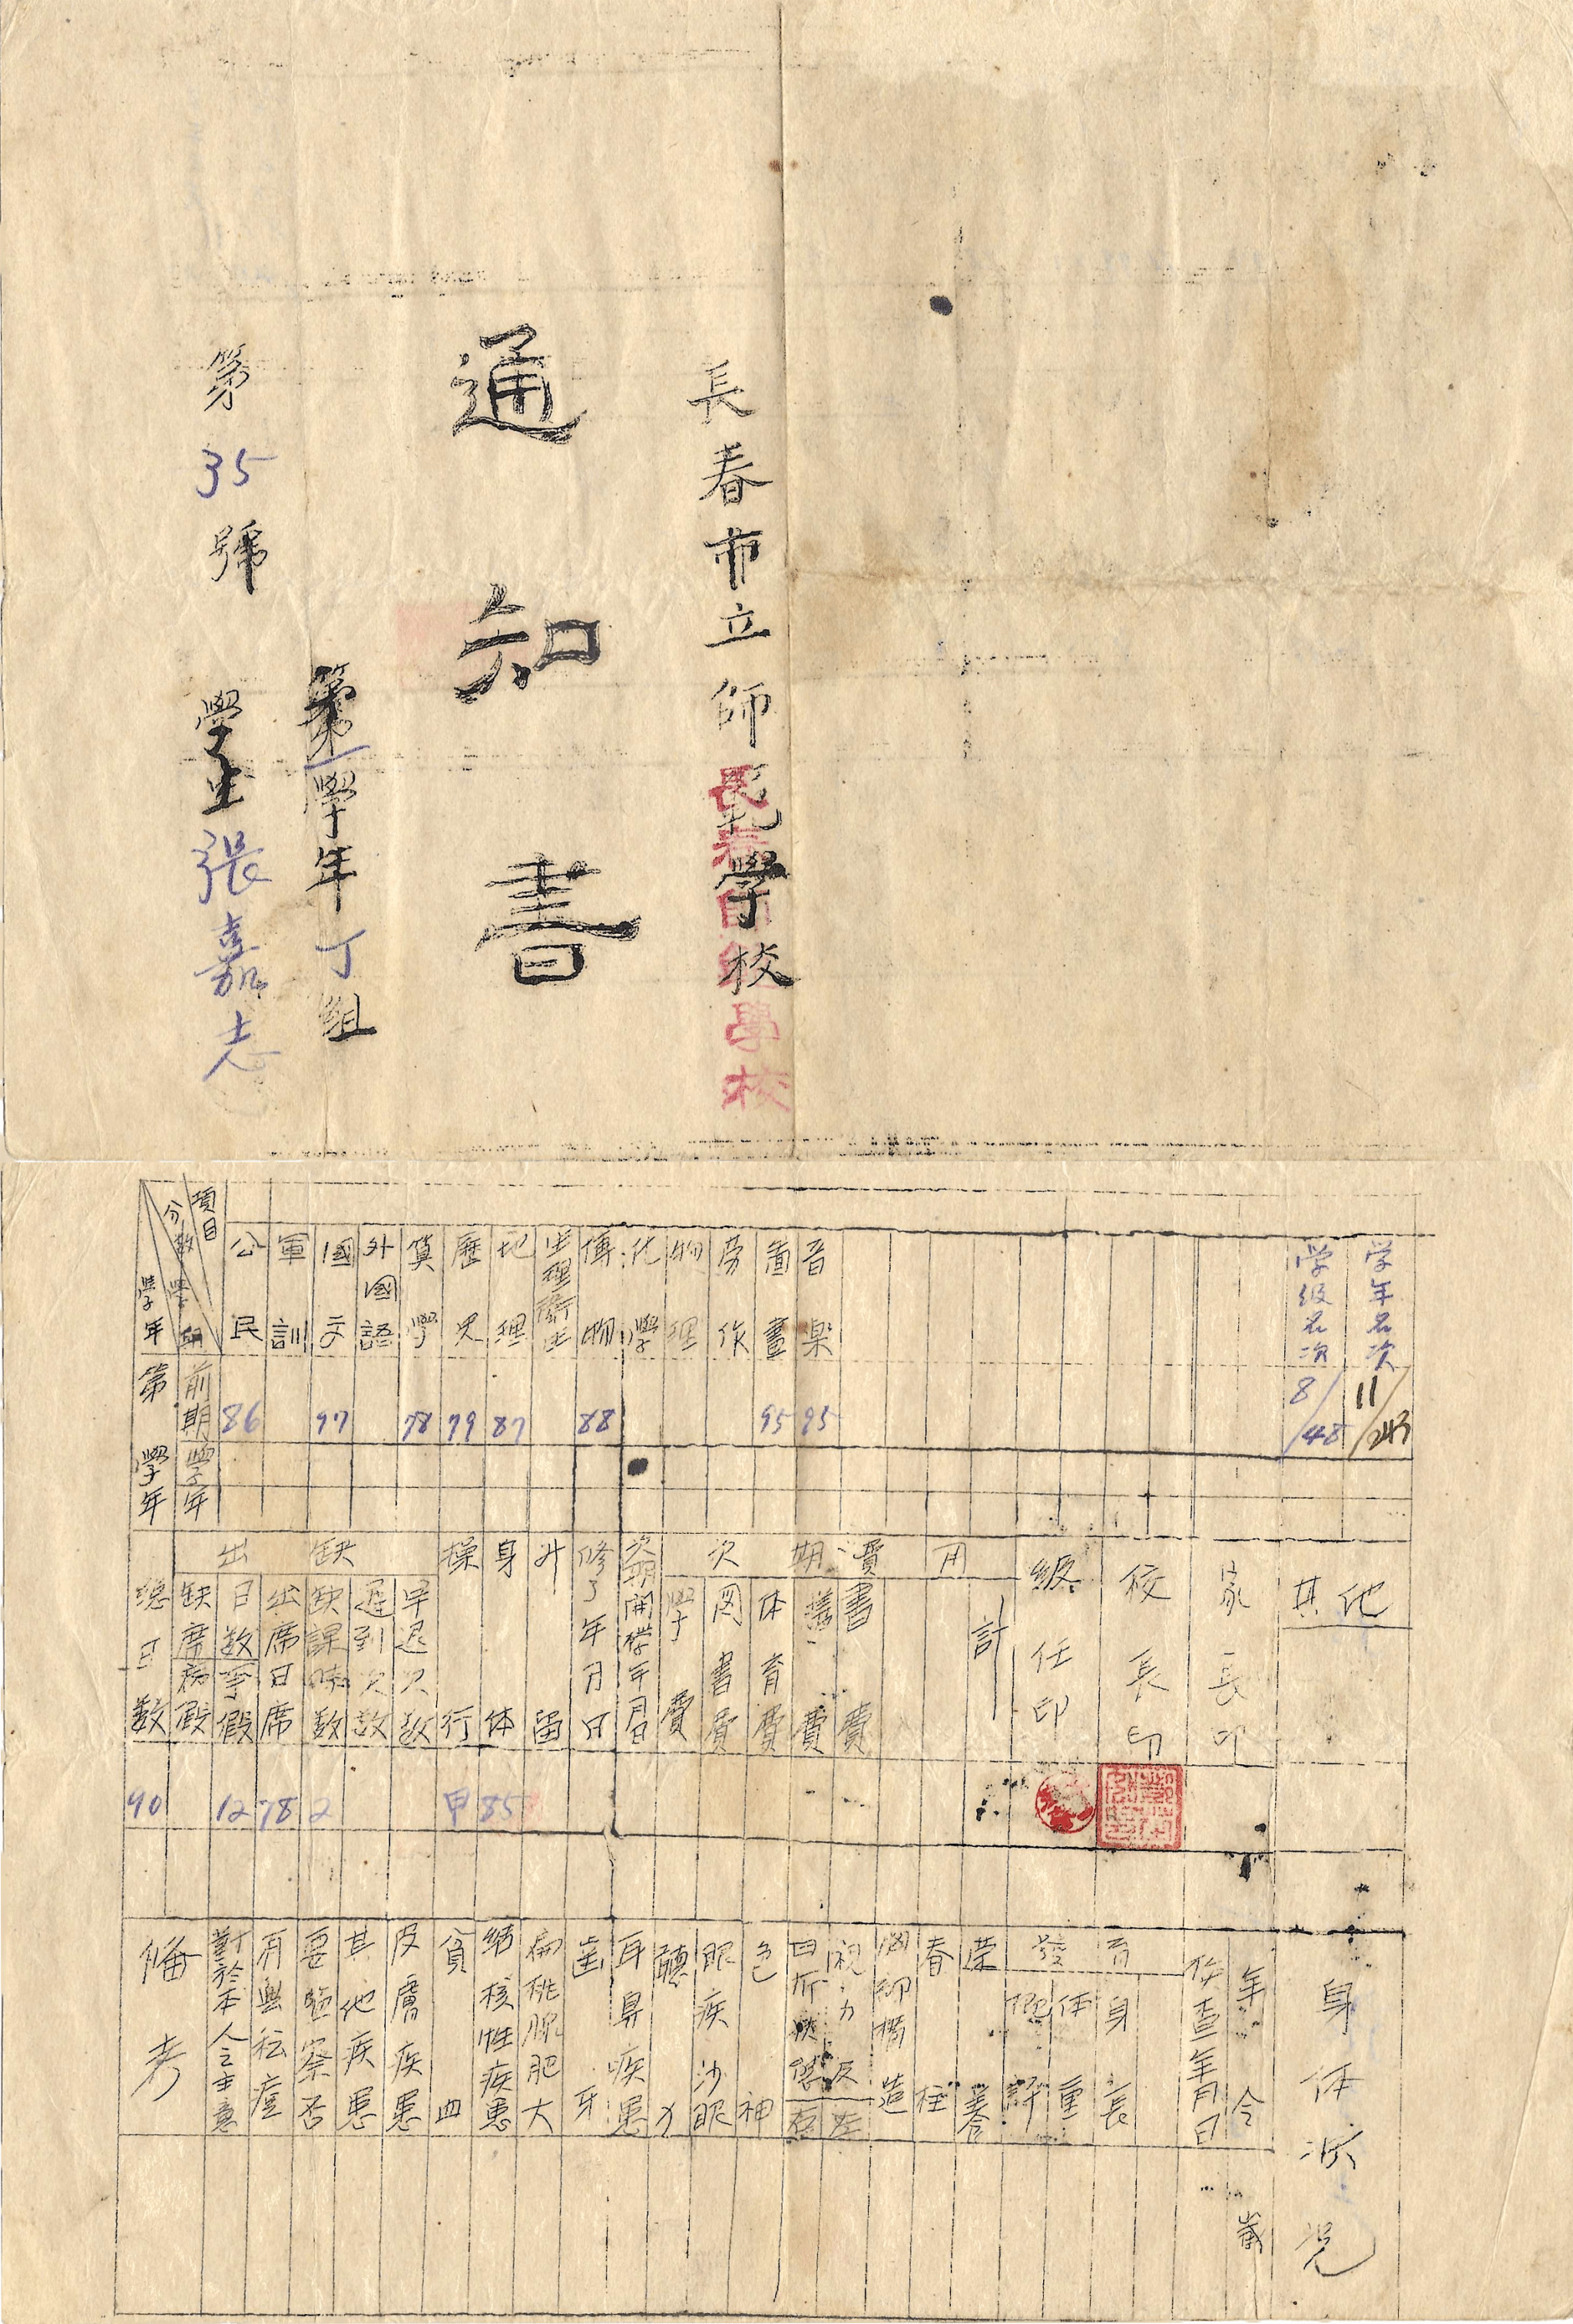 長春市立師範學校
長春師範學校
通知書
第一學年丁組
第35號 學生張嘉志
項目
分數
學期
學年
公民
軍訓
國文
外國語
算學
歷史
地理
生理衛生
博物
化學
物理
勞作
圖畫
音樂
学級名次
学年名次
第 學年
前期
86
97
78
79
87
88
95
95
8/48
11/243
學年
出缺
總日數
缺席日數
病假
事假
出席日席
缺課時數
遲到次数
早退次数
操行
身体
升留
修了年月日
次期開學年月日
次期費用
學費
図書費
体育費
書費
計
級任印
校長印
家長印
其他
90
12
78
2
甲
85
備考
對於本人之主意
有無
要 察否
其他疾患
皮膚疾患
貧血
結核性疾患
扁桃腺肥大
齒牙
耳鼻疾患
聽力
眼疾沙眼
色神
視力
右
左
胸 構造
脊柱
榮養
發育
概評
体重
身長
年令
歲
身体狀況